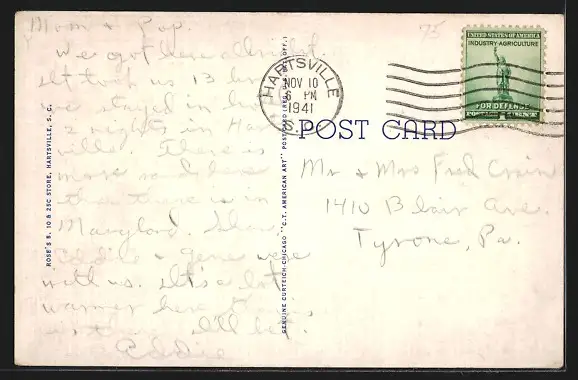 Mom & Pop.
We got here allright.
It took us 13 hrs
we stayed in
2 nights in Harts
ville. There is
more here
than there is in
Maryland.
Eddie & Gene were
with us. It's a lot
warmer here
I'll bet.
Eddie
75
HARTSVILLE
NOV 10
6 PM
1941
S.C.
UNITED STATES OF AMERICA
INDUSTRY AGRICULTURE
FOR DEFENSE
POST CARD
Mr & Mrs Fred Crain
1410 Blair Ave.
Tyrone, Pa.
ROSE'S 5. 10 & 25C STORE, HARTSVILLE, S. C.
GENUINE CURTEICH-CHICAGO "C.T. AMERICAN ART" POST CARD (REG. U.S. PAT. OFF.)